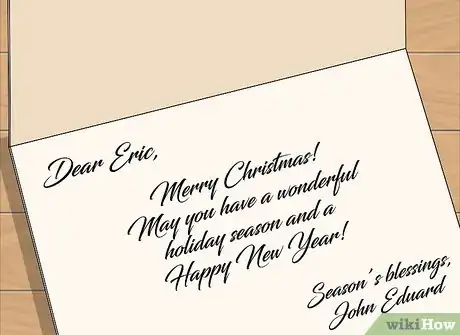 Dear Eric,
Merry Christmas!
May you have a wonderful
holiday season and a
Happy New Year!
Season's blessings,
John Eduard
wikiHow